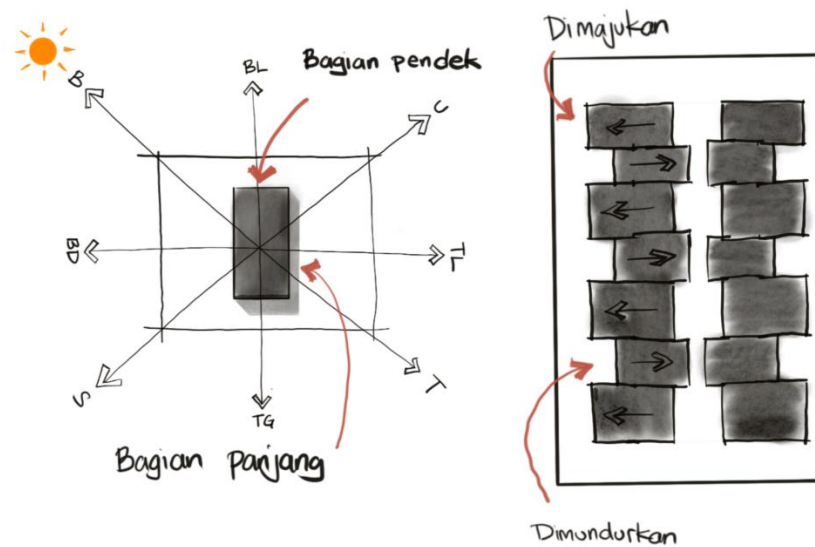 B
BL
Bagian pendek
U
BD
TL
S
TG
T
Bagian panjang
Dimajukan
Dimundurkan